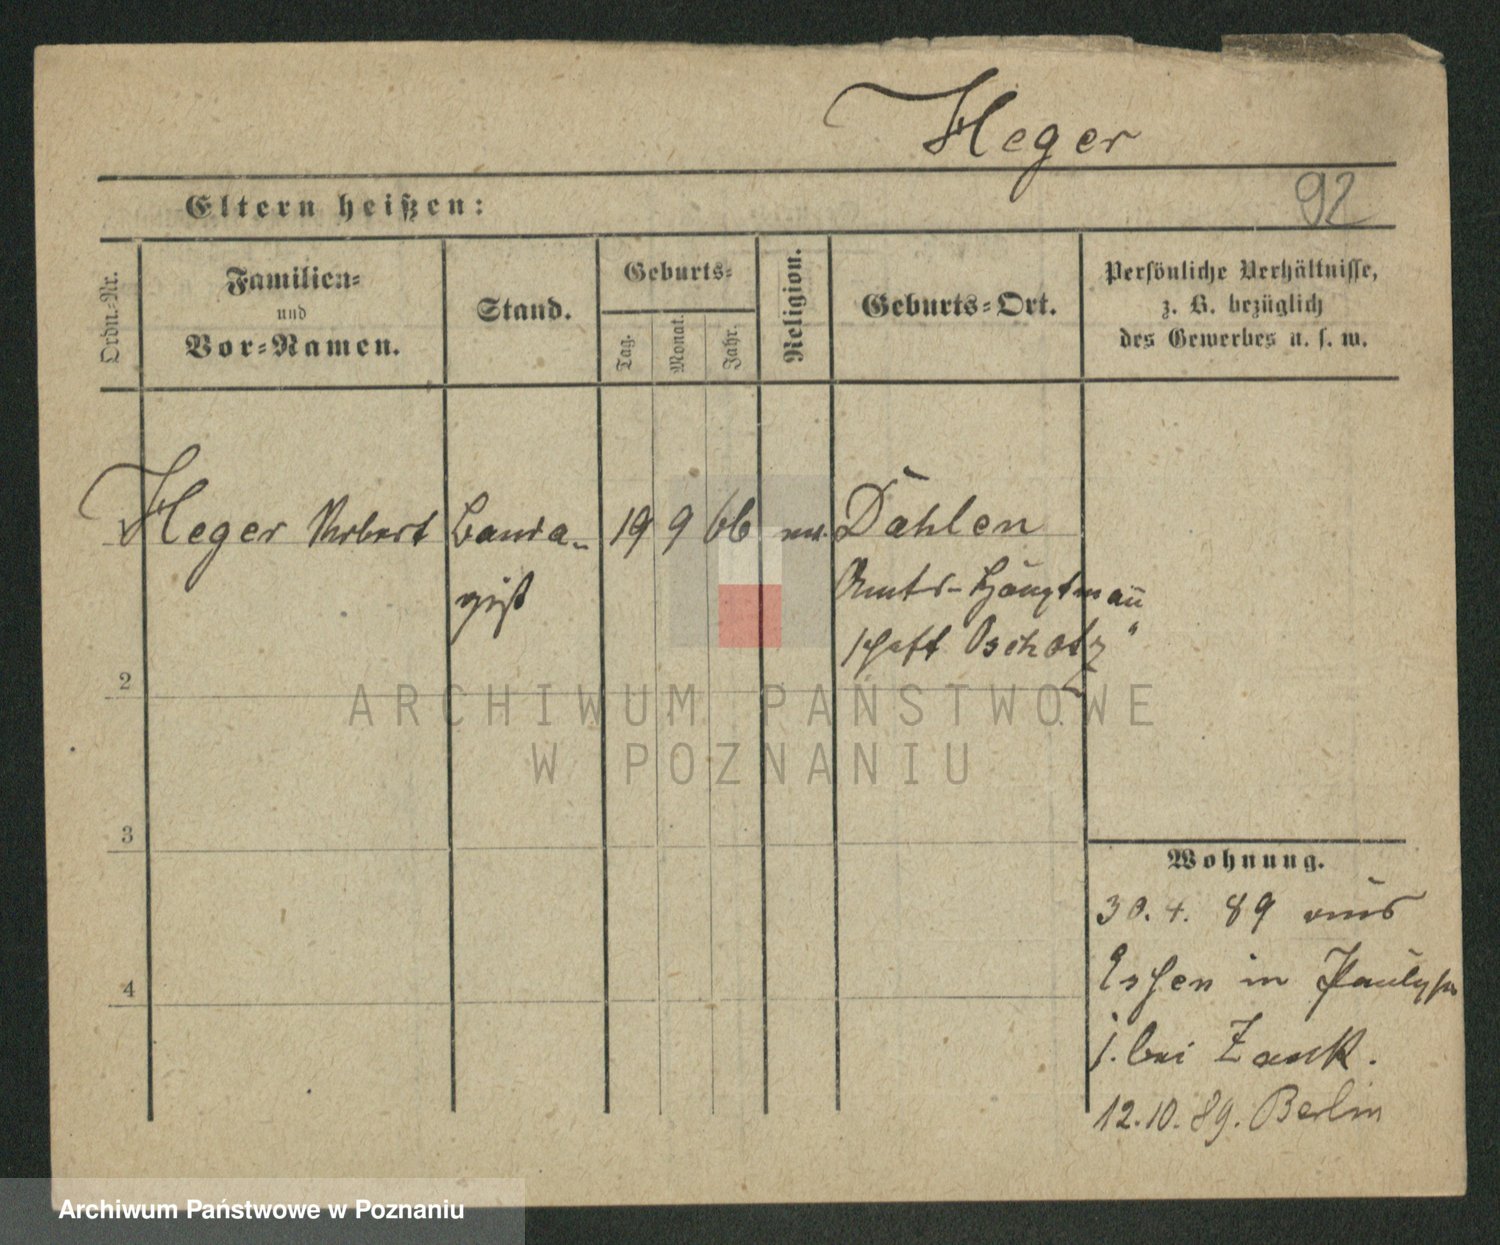 Heger
92
Eltern heißen:
Ordn.-Nr.
Familien-
und
Vor-Namen.
Stand.
Geburts-
Tag.
Monat.
Jahr.
Religion.
Geburts-Ort.
Persönliche Verhältnisse,
z. B. bezüglich
des Gewerbes u. s. w.
Heger Robert
19 9 66
Dahlen
Amts-Hauptmañ
schaft Oschatz
2
3
4
Wohnung.
30. 4. 89 aus
Essen in
j. bei Zank.
12.10.89. Berlin
ARCHIWUM PAŃSTWOWE
W POZNANIU
Archiwum Państwowe w Poznaniu